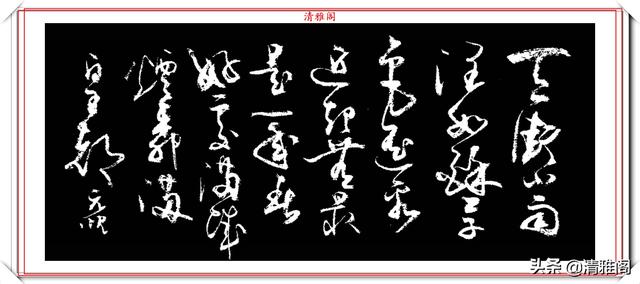 清雅阁
天街小雨
潤如酥草
色遥看
近却無最
是一年春
好處絕勝
煙柳滿
皇都
头条 @清雅阁